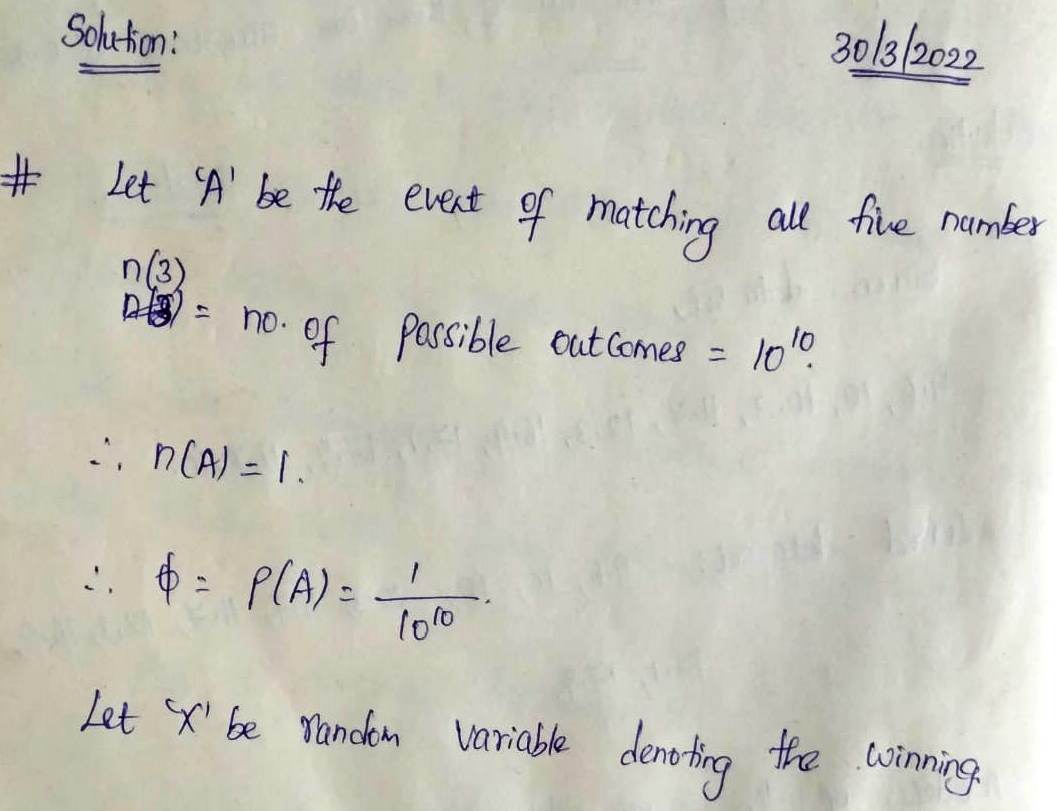 Solution:
30/3/2022
# Let 'A' be the event of matching all five number
n(3)
= no. of possible outcomes = 10¹⁰.
∴ n(A) = 1.
∴ φ = P(A) = 1/10¹⁰.
Let 'X' be random variable denoting the winning.